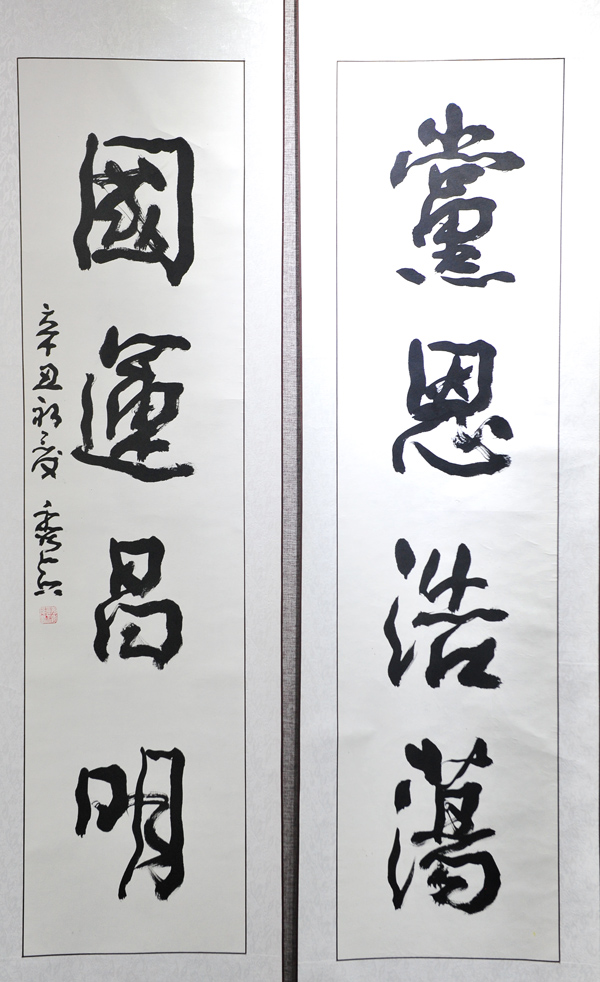 黨恩浩蕩
國運昌明
辛丑初夏